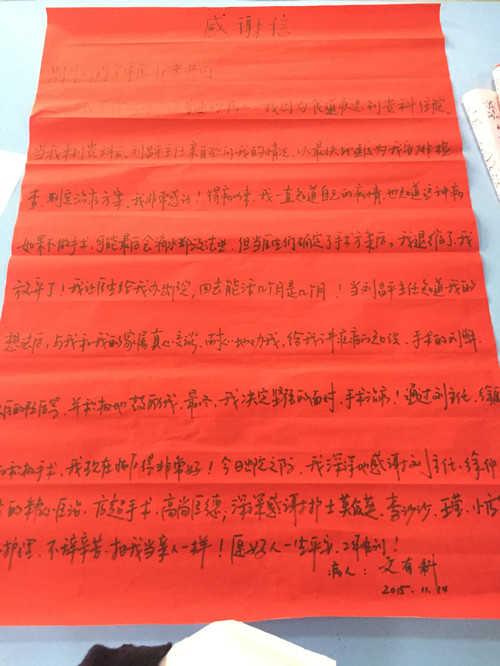 感谢信
我因为食道疾患到贵科住院
当我来到贵科后,刘昌平主任亲自询问我的情况,以最快地速度为我安排检
查,制定治疗方案,我非常感谢!得病以来,我一直知道自己的病情,也知道这种病
如果不做手术,可能最后会滴水都没法进,但当医生们确定了手术方案后,我退缩了,我
放弃了!我让医生给我办出院,回去能活几个月是几个月!当刘昌平主任知道我的
想法后,与我和我的家属真心交谈,耐心地劝我,给我讲疾病的近况,手术的利弊
并积极地鼓励我,最终,我决定坚强的面对,手术治疗!通过刘主任、徐
手术,我现在恢复得非常好!今日出院之际,我深深地感谢刘主任、徐
的精心医治、高超手术、高尚医德;深深感谢护士莫、李沙沙、王瑾、小
护理,不辞辛苦,把我当亲人一样!愿好人一生平安,一切顺利!
病人:文有科
2015.11.14